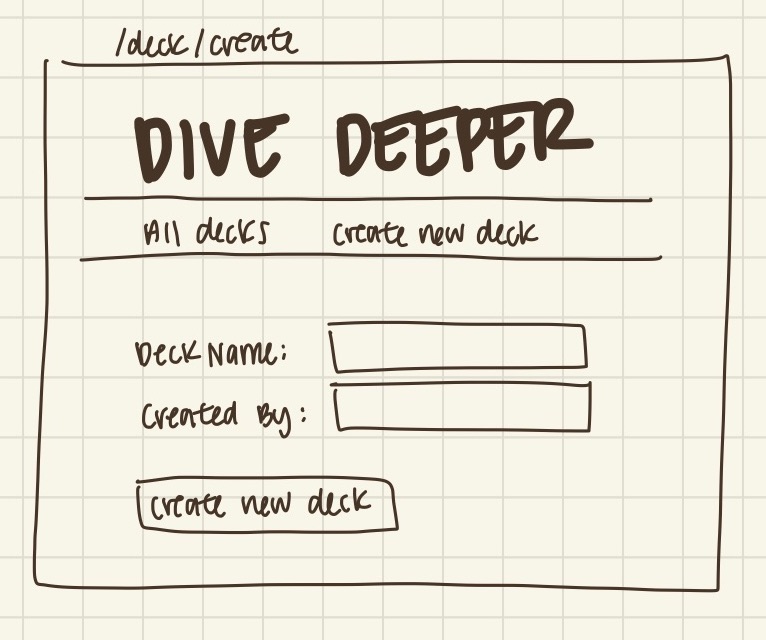 /deck/create
DIVE DEEPER
All decks create new deck
Deck Name:
Created By:
create new deck